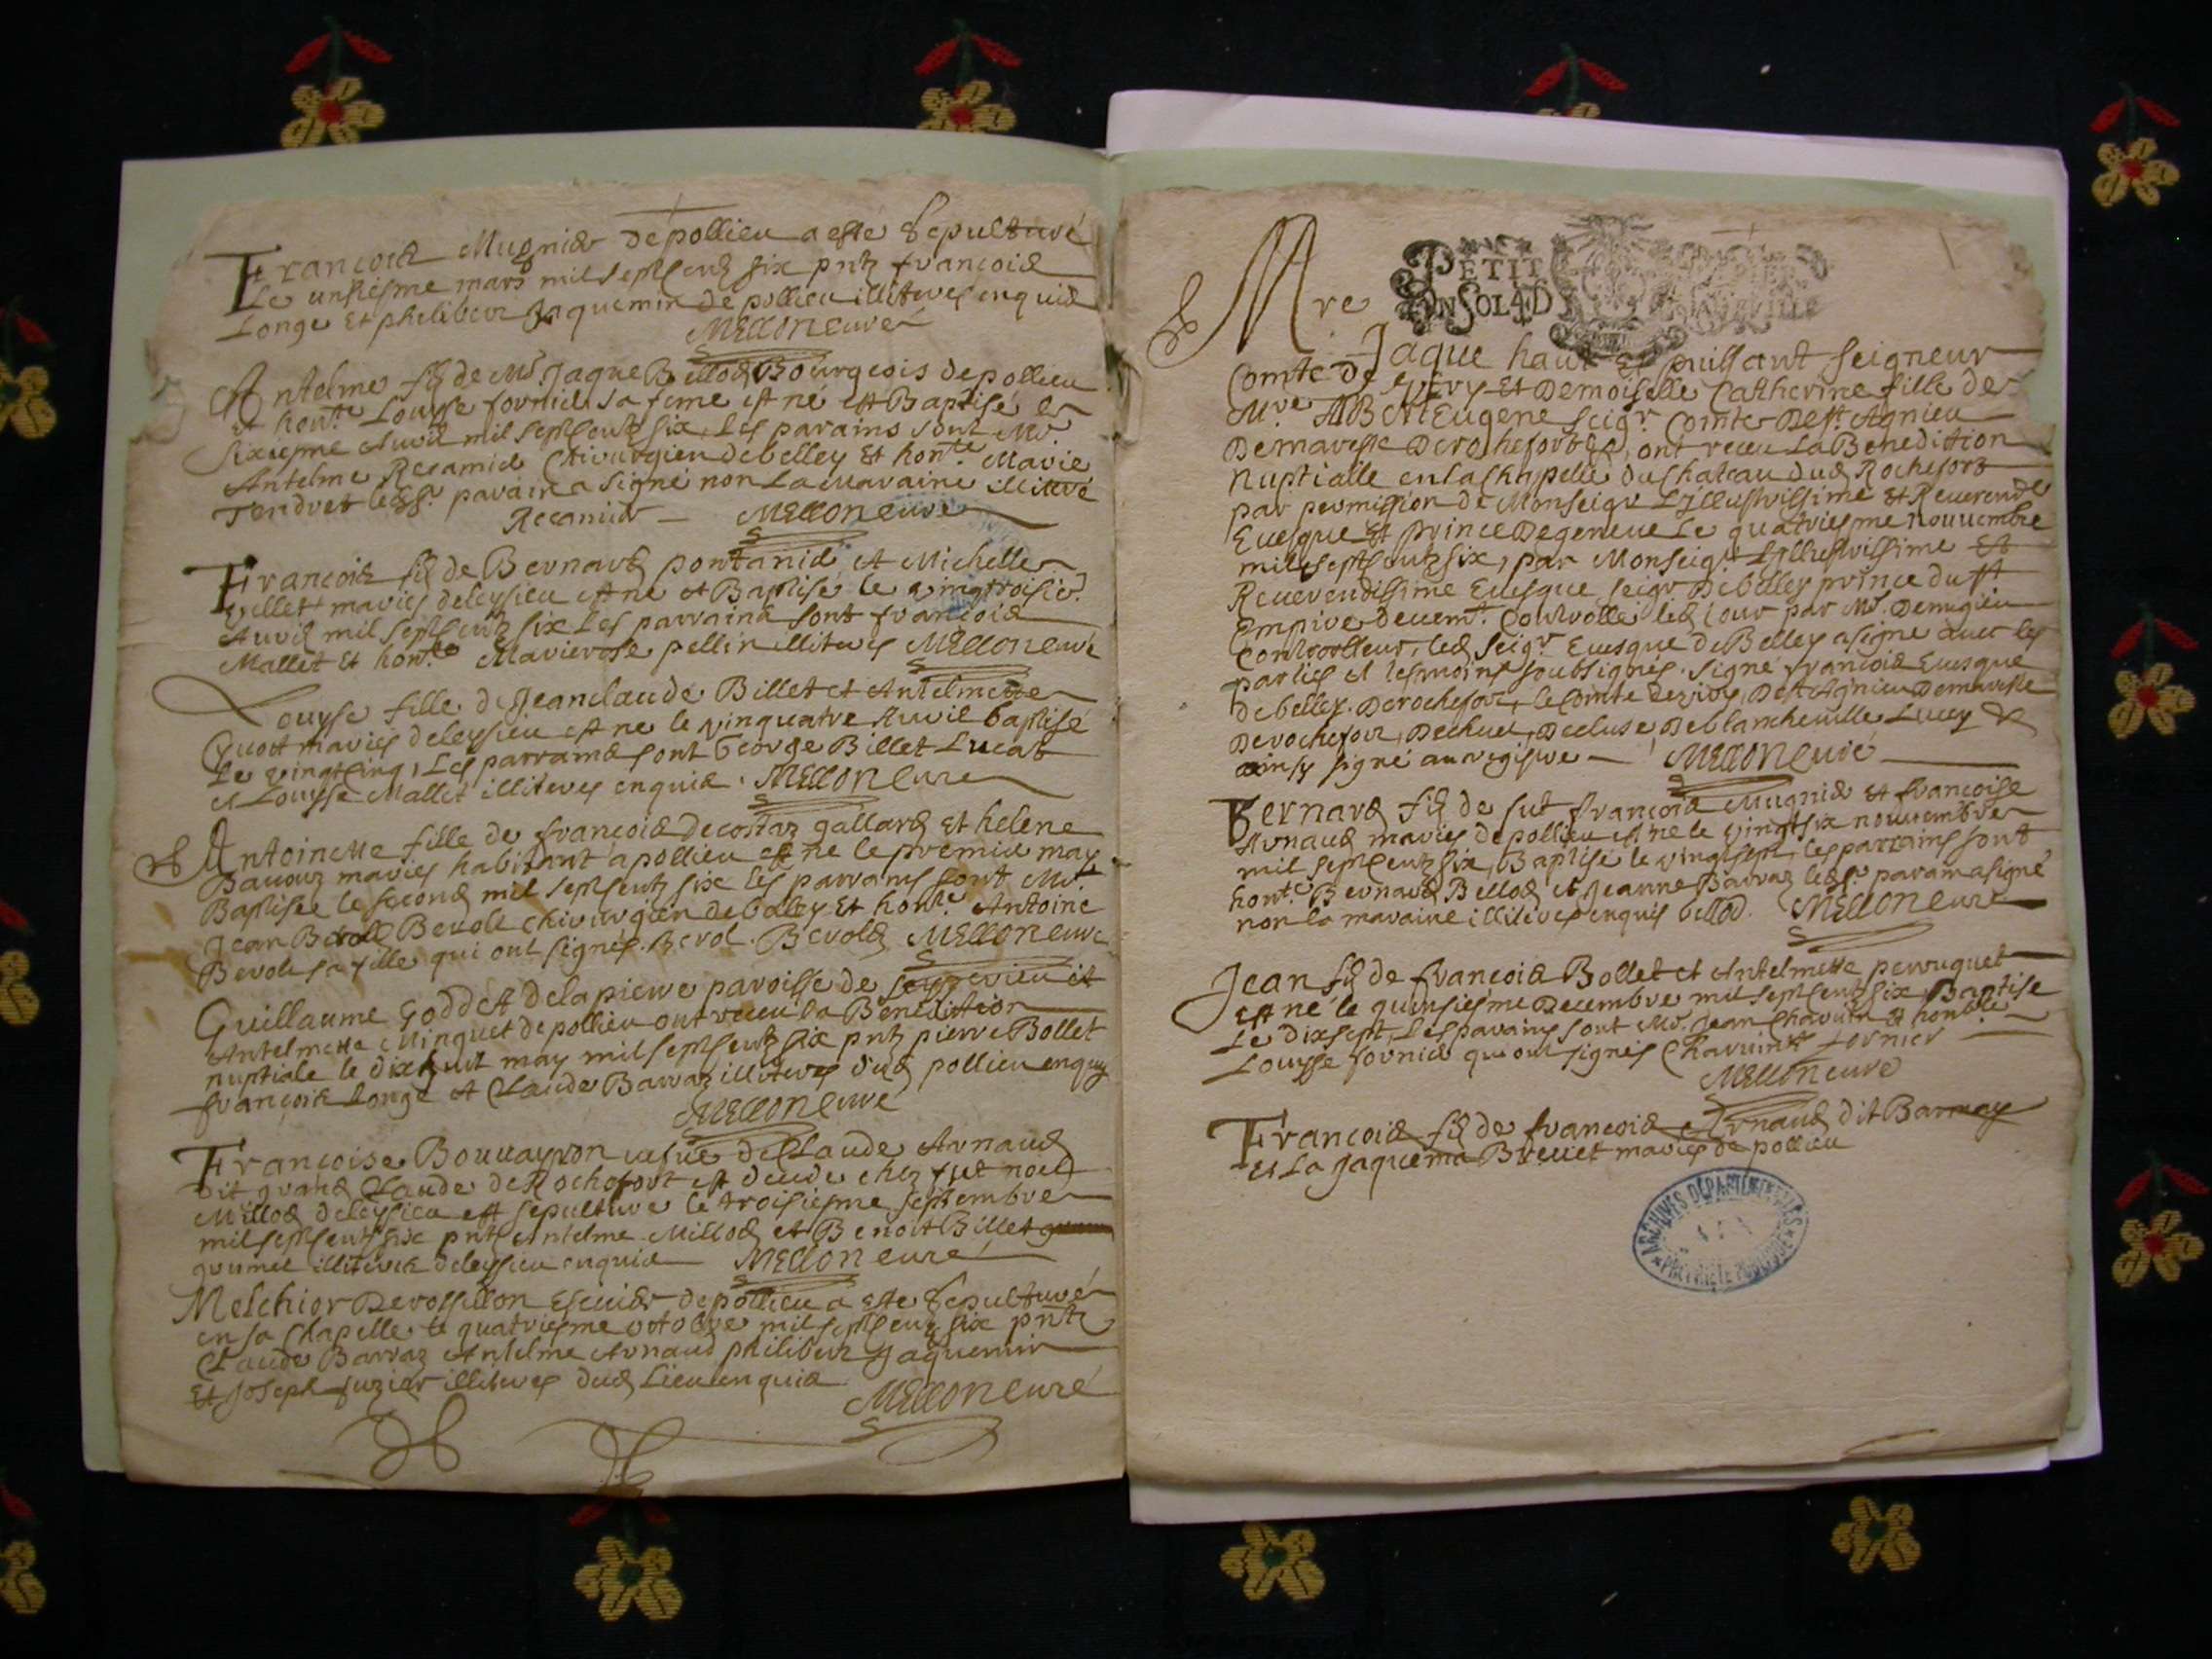 Francois Mugnier de pollieu a esté sepulturé
Le unsiesme mars mil septcentz six pntz francois
Longe Et philibert Jaquemin de pollieu illiteres enquis
MELLON Curé
Antelme fils de Mr. Jaque Bourgeois de pollieu
et hon.te Louyse fornier sa feme est né et Baptisé le
sixiesme Auvril mil septcentz six, Les parains sont Mr.
Antelme Recamier Chirurgien de belley Et hon.te Marie
Tendret led Sr. parain a signé non La maraine illiteré
Recamier — MELLON Curé
Francois fils de Bernard pontanier et Michelle
Vellet maries de leysieu est né et Baptisé le vingtroisie.
Auvril mil septcentz six Les parrains sont francois
Mallet Et hon.te Marierose pellin illiteres MELLON Curé
Louyse fille de Jeanclaude Billet et Antelmette
Cyuot maries de leysieu est ne le vinquatre Auvril baptisé
Le vingtcinq, Les parrains sont George Billet Lucat
et Louyse Mallet illiteres enquis. MELLON Curé
Antoinette fille de francois decostaz gallard Et helene
maries habitant a pollieu est ne le premier may
Baptisée le second mil septcentz six les parrains sont Mr.
Jean Berod Chirurgien de belley Et hon.te Antoine
Berod sa fille qui ont signés. Berod. Berod MELLON Curé
Guillaume Goddet de la pierre paroisse de seyzerieu et
Antelmette Minquet de pollieu ont receu la Benediction
nuptiale le dixhuit may mil septcentz six pntz pierre Bollet
francois Longe et Claude Barraz illiteres dud pollieu enquis
MELLON Curé
Francoise Bouuayron vefue de Claude Arnaud
dit grand Claude de Rochefort est decede chez fut noel
Millod de leysieu est sepulture le troisiesme septembre
mil septcentz six pntz Antelme Millod et Benoit Billet
grumel illiteres de leysieu enquis MELLON Curé
Melchior Derossillon Escuier de pollieu a esté sepulturé
en sa Chapelle le quatriesme octobre mil septcentz six pntz
Claude Barraz Antelme Arnaud philibert Jaquemin
Et Joseph fuzier illiteres dud Lieu enquis
MELLON Curé
PETIT PAPIER
EN SOLD
Mre
Jaque haut Et puissant seigneur
Comte de Et Demoiselle Catherine fille de
Mre. Albert Eugene seigr. Comte De st. Agnieu
Demareste De rochefort ont receu La Benediction
Nuptialle en la Chapelle du Chateau dud Rochefort
par permission de Monseigr Lillustrissime Et Reuerend
Euesque Et prince De geneue Le quatriesme nouuembre
mil septcentz six, par Monseigr Lillustrissime Et
Reuerendissime Euesque seigr De belley prince du st
Empire deuemt. Controlle led Jour par Mr. Demugieu
Controolleur, led seigr. Euesque de Belley a signé auec les
parties et tesmoins soubsignés. signé Francois Euesque
de belley. De rochefort, le Comte De st Agnieu Demareste
De rochefort, Dechuet, Decluse, De blancheuille Lucey
ainsy signé au registre — MELLON Curé
Bernard fils de fut francois Mugnier et francoise
Arnaud maries de pollieu est ne le vingtsix nouuembre
mil septcentz six, Baptisé le vingtsept, les parrains sont
hon.te Bernard Bellod et Jeanne Barraz led Sr. parain a signé
non la maraine illiteres enquis bellod. MELLON Curé
Jean fils de francois Bollet et Antelmette perruquet
est né le quinsiesme Decembre mil septcentz six Baptisé
Le dixsept, Les parains sont Mr. Jean Charuin Et honble
Louyse fornier qui ont signés Charuin fornier
MELLON Curé
Francois fils de francois Arnaud dit Barnay
Et La Jaquema Breuet maries de pollieu
ARCHIVES DÉPARTEMENTALES
AIN
PROPRIÉTÉ PUBLIQUE